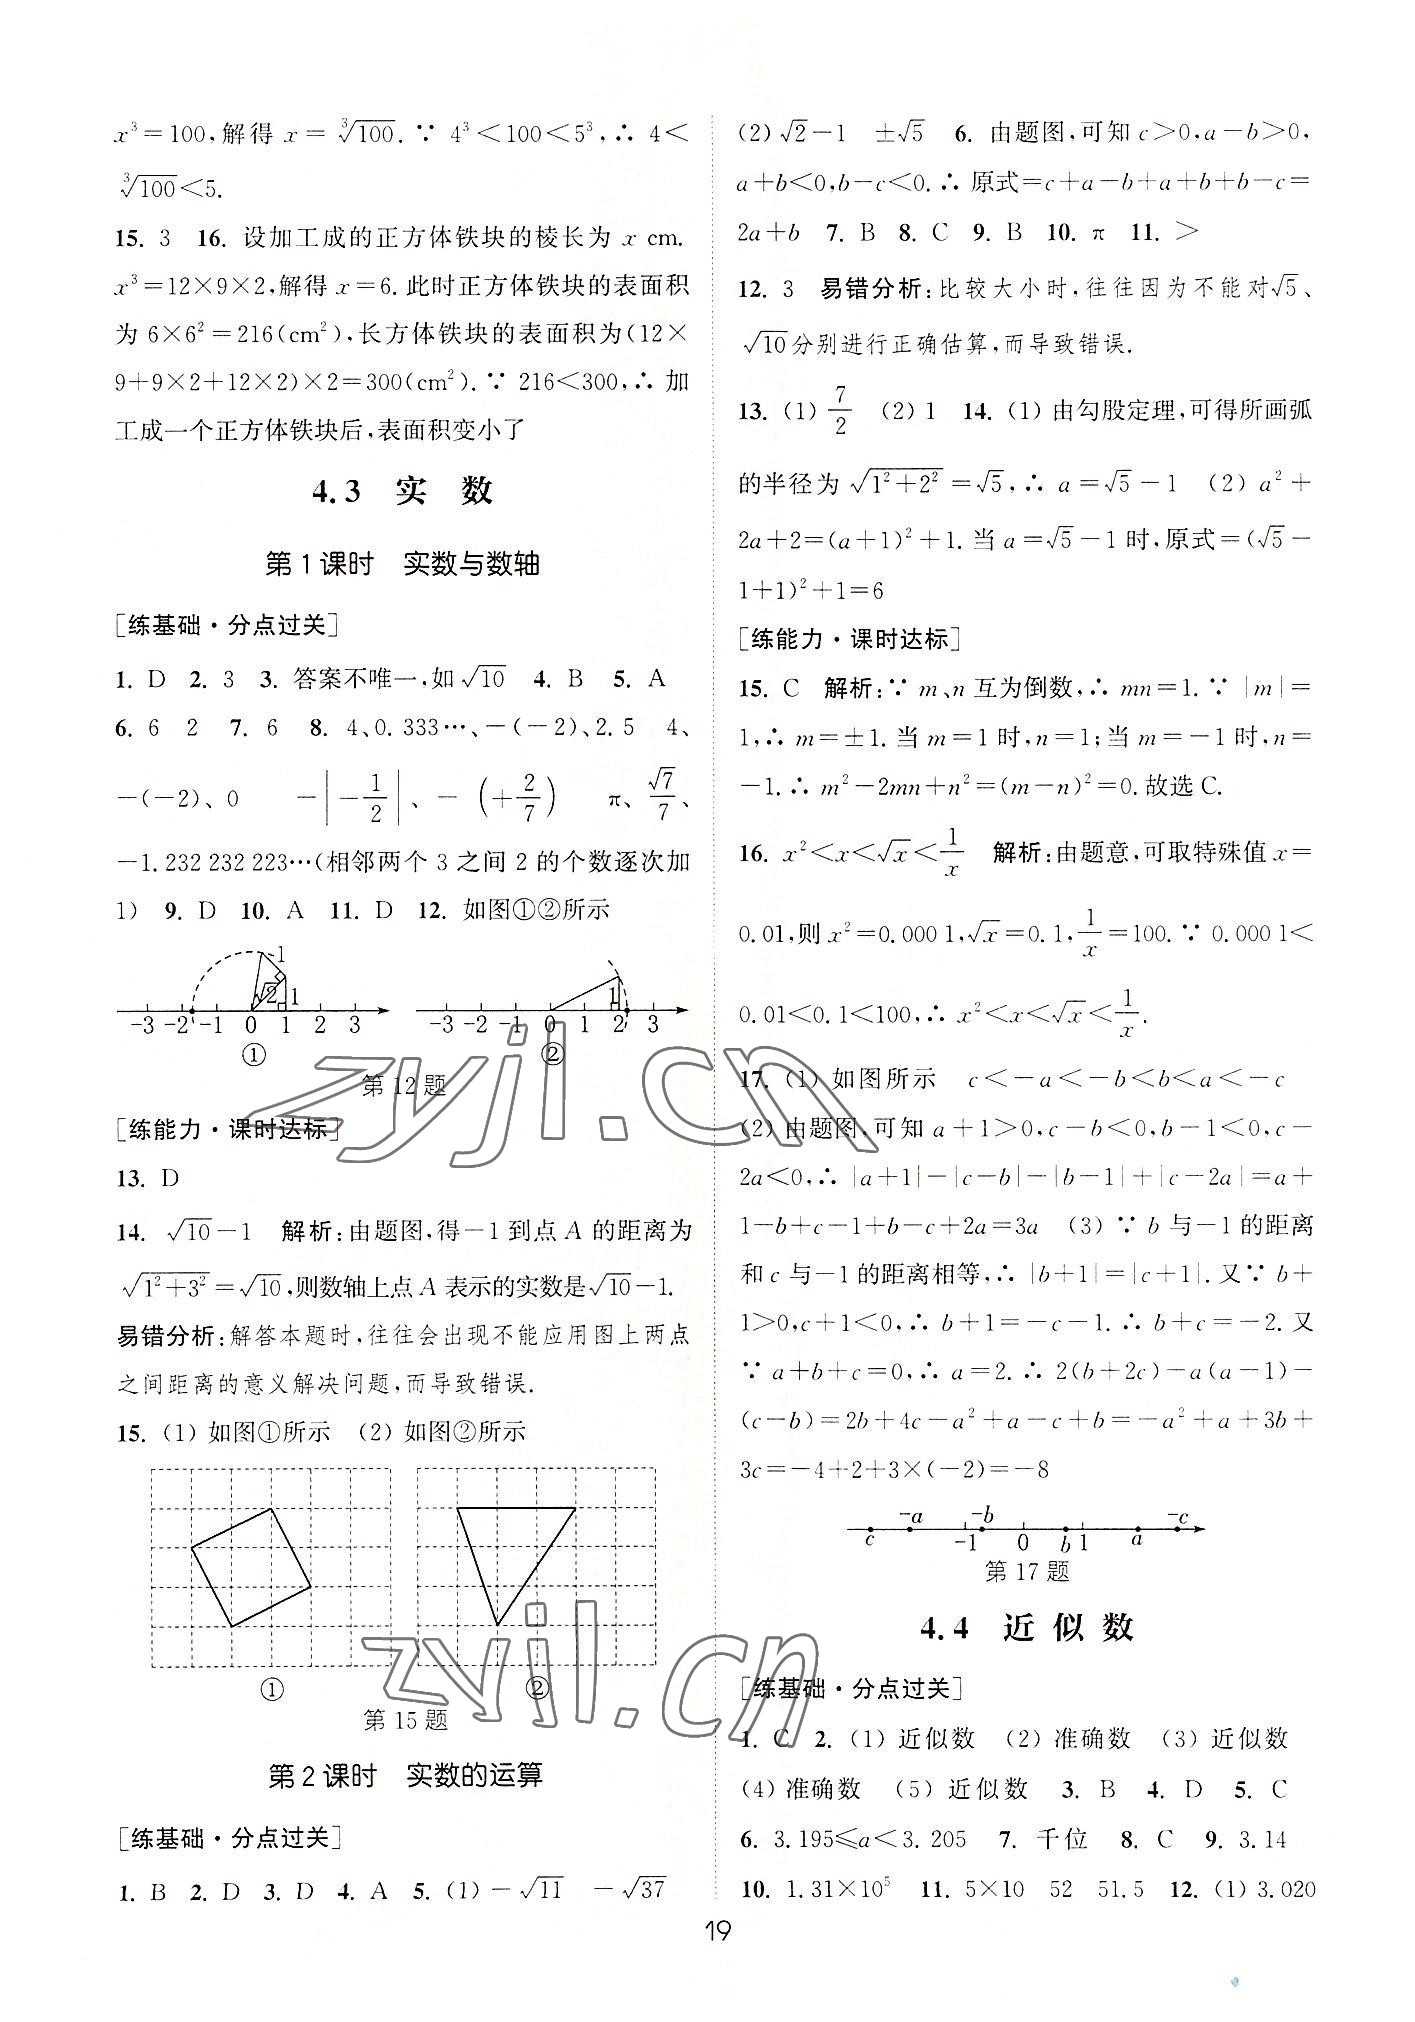 x³=100,解得 x=∛100.∵ 4³<100<5³,∴ 4<
∛100<5.
15. 3 16. 设加工成的正方体铁块的棱长为 x cm.
x³=12×9×2,解得 x=6.此时正方体铁块的表面积
为 6×6²=216(cm²),长方体铁块的表面积为(12×
9+9×2+12×2)×2=300(cm²).∵ 216<300,∴ 加
工成一个正方体铁块后,表面积变小了
4.3 实 数
第1课时 实数与数轴
[练基础·分点过关]
1. D 2. 3 3. 答案不唯一,如√10 4. B 5. A
6. 6 2 7. 6 8. 4、0.333…、-(-2)、2.5 4、
-(-2)、0 -|-1/2|、-(+2/7) π、√7/7、
-1.232 232 223…(相邻两个 3 之间 2 的个数逐次加
1) 9. D 10. A 11. D 12. 如图①②所示
1
√2 1
-3 -2 -1 0 1 2 3
①
1
-3 -2 -1 0 1 2 3
②
第12题
[练能力·课时达标]
13. D
14. √10-1 解析:由题图,得-1 到点 A 的距离为
√(1²+3²)=√10,则数轴上点 A 表示的实数是√10-1.
易错分析:解答本题时,往往会出现不能应用图上两点
之间距离的意义解决问题,而导致错误.
15. (1) 如图①所示 (2) 如图②所示
① ②
第15题
第2课时 实数的运算
[练基础·分点过关]
1. B 2. D 3. D 4. A 5. (1)-√11 -√37
(2) √2-1 ±√5 6. 由题图,可知 c>0,a-b>0,
a+b<0,b-c<0.∴ 原式=c+a-b+a+b+b-c=
2a+b 7. B 8. C 9. B 10. π 11. >
12. 3 易错分析:比较大小时,往往因为不能对√5、
√10分别进行正确估算,而导致错误.
13. (1) 7/2 (2) 1 14. (1) 由勾股定理,可得所画弧
的半径为 √(1²+2²)=√5,∴ a=√5-1 (2) a²+
2a+2=(a+1)²+1.当 a=√5-1 时,原式=(√5-
1+1)²+1=6
[练能力·课时达标]
15. C 解析:∵ m、n 互为倒数,∴ mn=1.∵ |m|=
1,∴ m=±1.当 m=1 时,n=1;当 m=-1 时,n=
-1.∴ m²-2mn+n²=(m-n)²=0.故选 C.
16. x²<x<√x<1/x 解析:由题意,可取特殊值 x=
0.01,则 x²=0.000 1,√x=0.1,1/x=100.∵ 0.000 1<
0.01<0.1<100,∴ x²<x<√x<1/x.
17. (1) 如图所示 c<-a<-b<b<a<-c
(2) 由题图,可知 a+1>0,c-b<0,b-1<0,c-
2a<0,∴ |a+1|-|c-b|-|b-1|+|c-2a|=a+
1-b+c-1+b-c+2a=3a (3) ∵ b 与-1 的距离
和 c 与-1 的距离相等,∴ |b+1|=|c+1|.又∵ b+
1>0,c+1<0,∴ b+1=-c-1.∴ b+c=-2.又
∵ a+b+c=0,∴ a=2.∴ 2(b+2c)-a(a-1)-
(c-b)=2b+4c-a²+a-c+b=-a²+a+3b+
3c=-4+2+3×(-2)=-8
-a -b -c
c -1 0 b 1 a
第17题
4.4 近 似 数
[练基础·分点过关]
1. C 2. (1) 近似数 (2) 准确数 (3) 近似数
(4) 准确数 (5) 近似数 3. B 4. D 5. C
6. 3.195≤a<3.205 7. 千位 8. C 9. 3.14
10. 1.31×10⁵ 11. 5×10 52 51.5 12. (1) 3.020
19
zyjl.cn
zyjl.cn